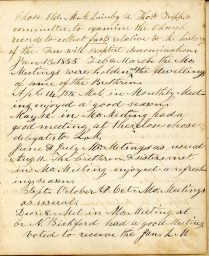 Chose Eld. M. H. Quinby & Thos. Tripp a
committee, to examine the Church
records to collect facts relative to the history
of the Free will Baptist denomination
Jan. 13 1855 Feb & March the Mo.
Meetings were holden, at the dwellings
of some of the Brethren
Apr. 14, 1855 Met in Monthly Meet-
ing enjoyed a good season.
May 12, in Mo. Meeting had a
good meeting at the close chose
delegates to Q. M.
June & July Mo. Meetings as usual
Aug 11. The brethren & sisters met
in Mo. Meeting enjoyed a refresh-
ing season
Sept. October & Oct. Mo. Meetings
as usual
Dec. 8. Met in Mo. Meeting at
br. A. Bickford had a good meeting
voted to receive the Jan. Q. M.